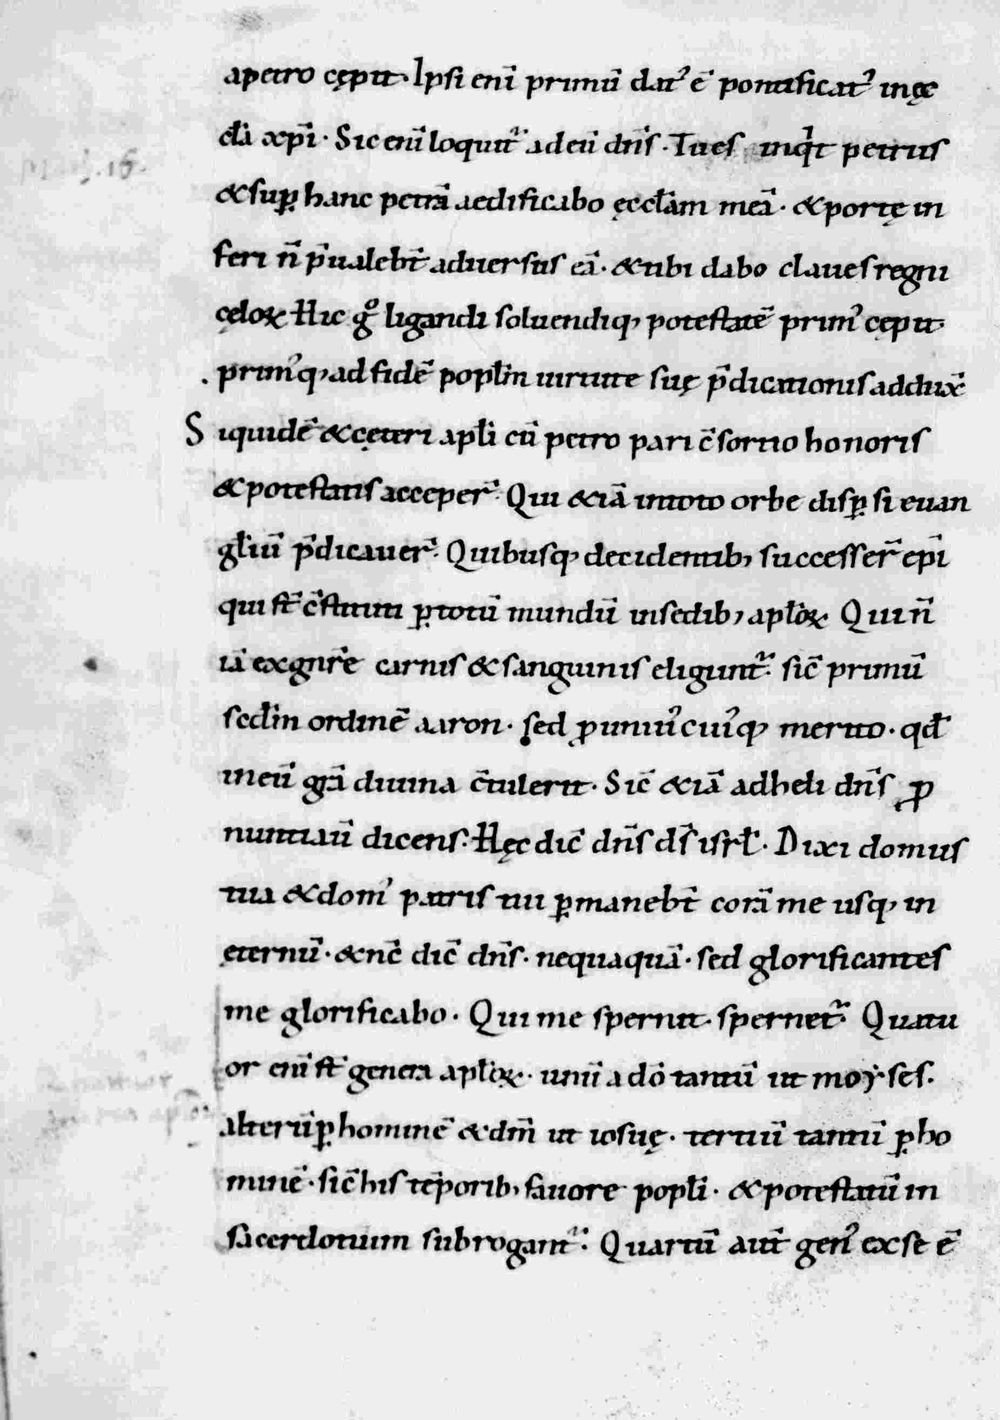 apetro cępit. Ipsi eni᷆ primū dat᾽ ē pontificat᾽ inęc
cl̄a xp̄i. Sic enī loquit᷑ ad eū dn̄s. Tu es inq̇t petrus
&suꝑ hanc petrā aedificabo ęccl̄am meā. &portę in
feri n̄ p̄ualeb̄t aduersus eā. &tibi dabo claues regni
cęloꝝ Hic gͦ ligandi soluendiq; potestatē prim᾽ cępit.
prim᾽q; ad fidē popl̄m uirtute suę p̄dicationis addux̄
Siquidē &cęteri apl̄i cū petro pari c̄sortio honoris
&potestatis acceper̄. Qui &iā intoto orbe disꝑsi euan
gl̄iū p̄dicauer̄. Quibusq; decidentib; successer̄ ep̄i
qui st̄ c̄stituti ꝑtotū mundū insedib; apl̄oꝝ Qui n̄
iā exgn̄re carnis &sanguinis eligunt᷑. sic̄ primū
sed̄m ordinē aaron. sed ꝓ uniu᾽cui᾽q; merito. qd̄
ineū gr̄a diuina c̄tulerit. Sic̄ &iā adheli dn̄s ꝓ
nuntiau̅ dicens. Hęc dic̄ dn̄s ds̄ isrl̄. Dixi domus
tua &dom᾽ patris tui ꝑmaneb̄t corā me usq; in
eternū. &nc̄ dic̄ dn̄s. nequaquā. sed glorificantes
me glorificabo. Qui me spernit. spernet᷑. Quatu
or enī st̄ genera apl̄oꝝ. unū a dō tantū ut moẏses.
alterū ꝑ hominē &dm̄ ut iosuę. tertiū tantū ꝑ ho
minē. sic̄ his tēporib; fauore popl̄i. &potestatū in
sacerdotium subrogant᷑. Quartū aut̄ gen᾽ exse ē